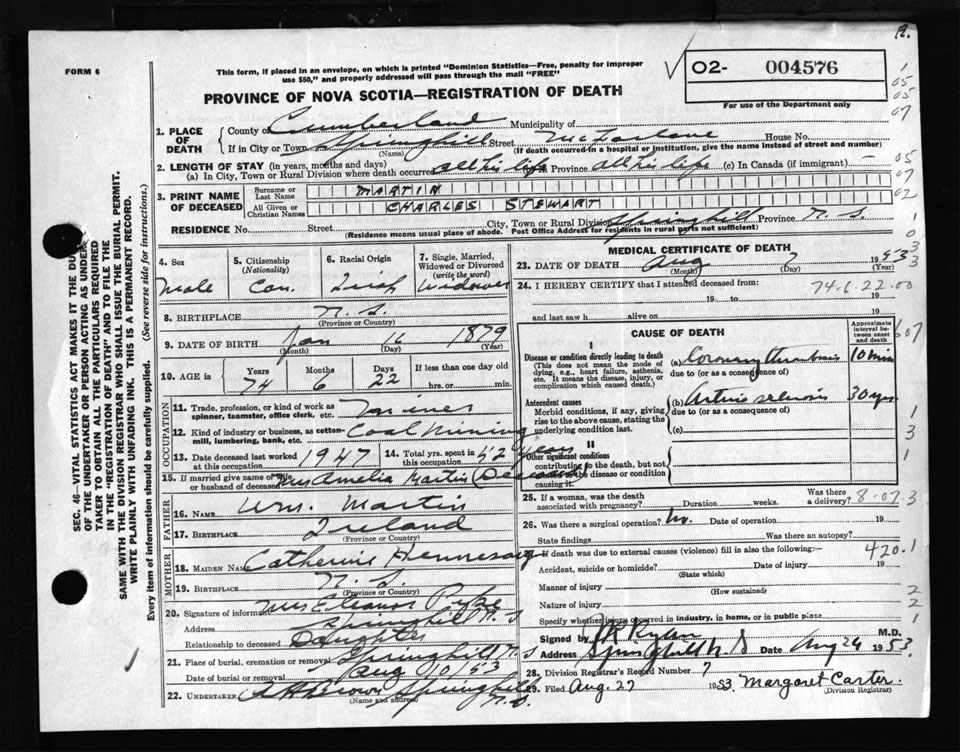 R.
FORM 6
This form, if placed in an envelope, on which is printed "Dominion Statistics—Free, penalty for improper
use $50," and properly addressed will pass through the mail "FREE"
02- 004576
For use of the Department only
PROVINCE OF NOVA SCOTIA—REGISTRATION OF DEATH
1. PLACE OF DEATH
County of Cumberland Municipality of
If in City or Town Springhill Street McFarlane House No.
(Name) (If death occurred in a hospital or institution, give the name instead of street and number)
2. LENGTH OF STAY (in years, months and days)
(a) In City, Town or Rural Division where death occurred all his life Province all his life (c) In Canada (if immigrant) —
3. PRINT NAME OF DECEASED
Surname or Last Name MARTIN
All Given or Christian Names CHARLES STEWART
RESIDENCE No. Street City, Town or Rural Division Springhill Province N.S.
(Residence means usual place of abode. Post Office Address for residents in rural parts not sufficient)
4. Sex Male
5. Citizenship (Nationality) Can.
6. Racial Origin Irish
7. Single, Married, Widowed or Divorced (write the word) Widower
8. BIRTHPLACE N.S.
(Province or Country)
9. DATE OF BIRTH Jan 16 1879
(Month) (Day) (Year)
10. AGE in Years 74 Months 6 Days 22 If less than one day old hrs. or min.
OCCUPATION
11. Trade, profession, or kind of work as spinner, teamster, office clerk, etc. Miner
12. Kind of industry or business, as cotton-mill, lumbering, bank, etc. Coal Mining
13. Date deceased last worked at this occupation 1947
14. Total yrs. spent in this occupation 52 years
15. If married give name of wife or husband of deceased Mrs Amelia Martin (Deceased)
FATHER
16. NAME Wm. Martin
17. BIRTHPLACE Ireland
(Province or Country)
MOTHER
18. MAIDEN NAME Catherine Hennessey
19. BIRTHPLACE N.S.
(Province or Country)
20. Signature of informant Mrs Eleanor Pyke
Address Springhill N.S
Relationship to deceased Daughter
21. Place of burial, cremation or removal Springhill N.S
Date of burial or removal Aug 10/53
22. UNDERTAKER Brown Springhill N.S.
(Name and address)
MEDICAL CERTIFICATE OF DEATH
23. DATE OF DEATH Aug 7 1953
(Month) (Day) (Year)
24. I HEREBY CERTIFY that I attended deceased from:
74.6.22.00
19 to 19
and last saw h alive on 19
CAUSE OF DEATH
Approximate interval between onset and death
Disease or condition directly leading to death
(This does not mean the mode of dying, e.g., heart failure, asthenia, etc. It means the disease, injury, or complication which caused death.)
(a) Coronary thrombosis 10 min
due to (or as a consequence of)
Antecedent causes
Morbid conditions, if any, giving rise to the above cause, stating the underlying condition last.
(b) Arterio sclerosis 30 yrs.
due to (or as a consequence of)
(c)
II
Other significant conditions
contributing to the death, but not related to the disease or condition causing it.
25. If a woman, was the death associated with pregnancy? Duration weeks. Was there a delivery? 8-07.3
26. Was there a surgical operation? No. Date of operation 19
State findings Was there an autopsy?
If death was due to external causes (violence) fill in also the following:— 420.1
Accident, suicide or homicide? Date of injury 19
(State which)
Manner of injury
(How sustained)
Nature of injury
Specify whether injury occurred in industry, in home, or in public place
Signed by JR Ryan M.D.
Address Springhill N.S Date Aug 24 1953.
28. Division Registrar's Record Number 7
29. Filed Aug. 27 1953. Margaret Carter.
(Division Registrar)
SEC. 46—VITAL STATISTICS ACT MAKES IT THE DUTY
OF THE UNDERTAKER OR PERSON ACTING AS UNDER-
TAKER TO OBTAIN ALL THE PARTICULARS REQUIRED
IN THE "REGISTRATION OF DEATH" AND TO FILE THE
SAME WITH THE DIVISION REGISTRAR WHO SHALL ISSUE THE BURIAL PERMIT.
WRITE PLAINLY WITH UNFADING INK. THIS IS A PERMANENT RECORD.
Every item of information should be carefully supplied. (See reverse side for instructions.)
1
05
05
07
05
07
02
1
0
3
3
607
1
3
1
2
2
1